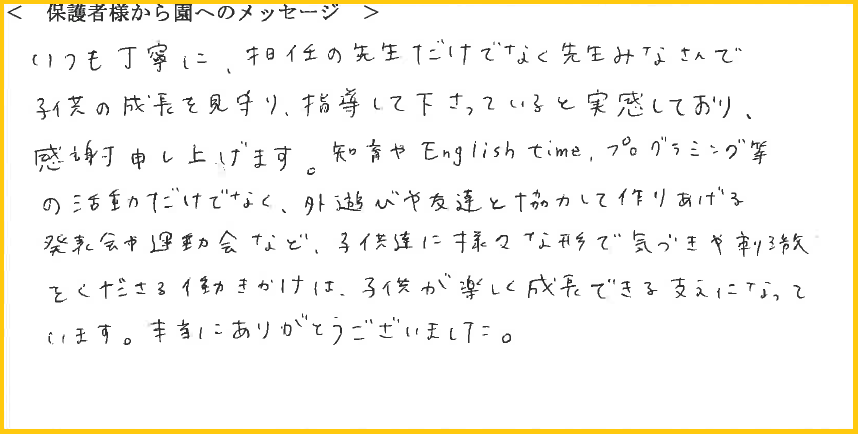 ＜　保護者様から園へのメッセージ　＞
いつも丁寧に、担任の先生だけでなく先生みなさんで
子供の成長を見守り、指導して下さっていると実感しており、
感謝申し上げます。知育やEnglish time, プログラミング等
の活動だけでなく、外遊びや友達と協力して作りあげる
発表会や運動会など、子供達に様々な形で気づきや刺激
をくださる働きかけは、子供が楽しく成長できる支えになって
います。本当にありがとうございました。